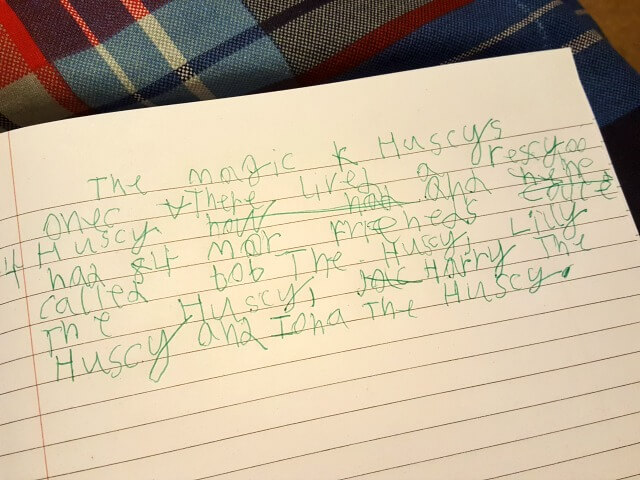 The magic Huscys
onec There lived a rescyoo
Huscy and he
4 had 4 mor frieneds
called bob The Huscy, Lilly
The Huscy, Harry The
Huscy and Iona The Huscy.